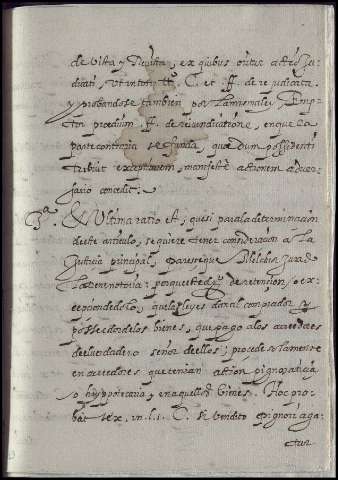 de vista y Revista, ex quibus oritur actio Ju
dicati, ut in toto tt.º C. et ff. de re judicata
y probandose tambien por la misma ley, Emp-
tor prædium ff. de rei vendicatione, en que la
parte contraria se funda, quæ dum possidenti
tribuit exceptionem, manifeste actionem adver-
sario concedit.
3.ª & Ultima ratio est, que si para la determinacion
deste articulo, se quiere tener consideracion a la
Justicia principal, Paresce que Melchior Jurado
La tiene notoria: porque este dr.º de retension, o ex-
cepcion de dolo, que las leyes dan al comprador y
possehedor de los bienes, que pago a los acreedores
del verdadero señor de ellos; procede solamente
en acreedores que tenian action pignoraticia
o hyppotecaria, en aquellos bienes. Hoc pro-
bat tex. in. l. C. si vendito pignore aga-
tur